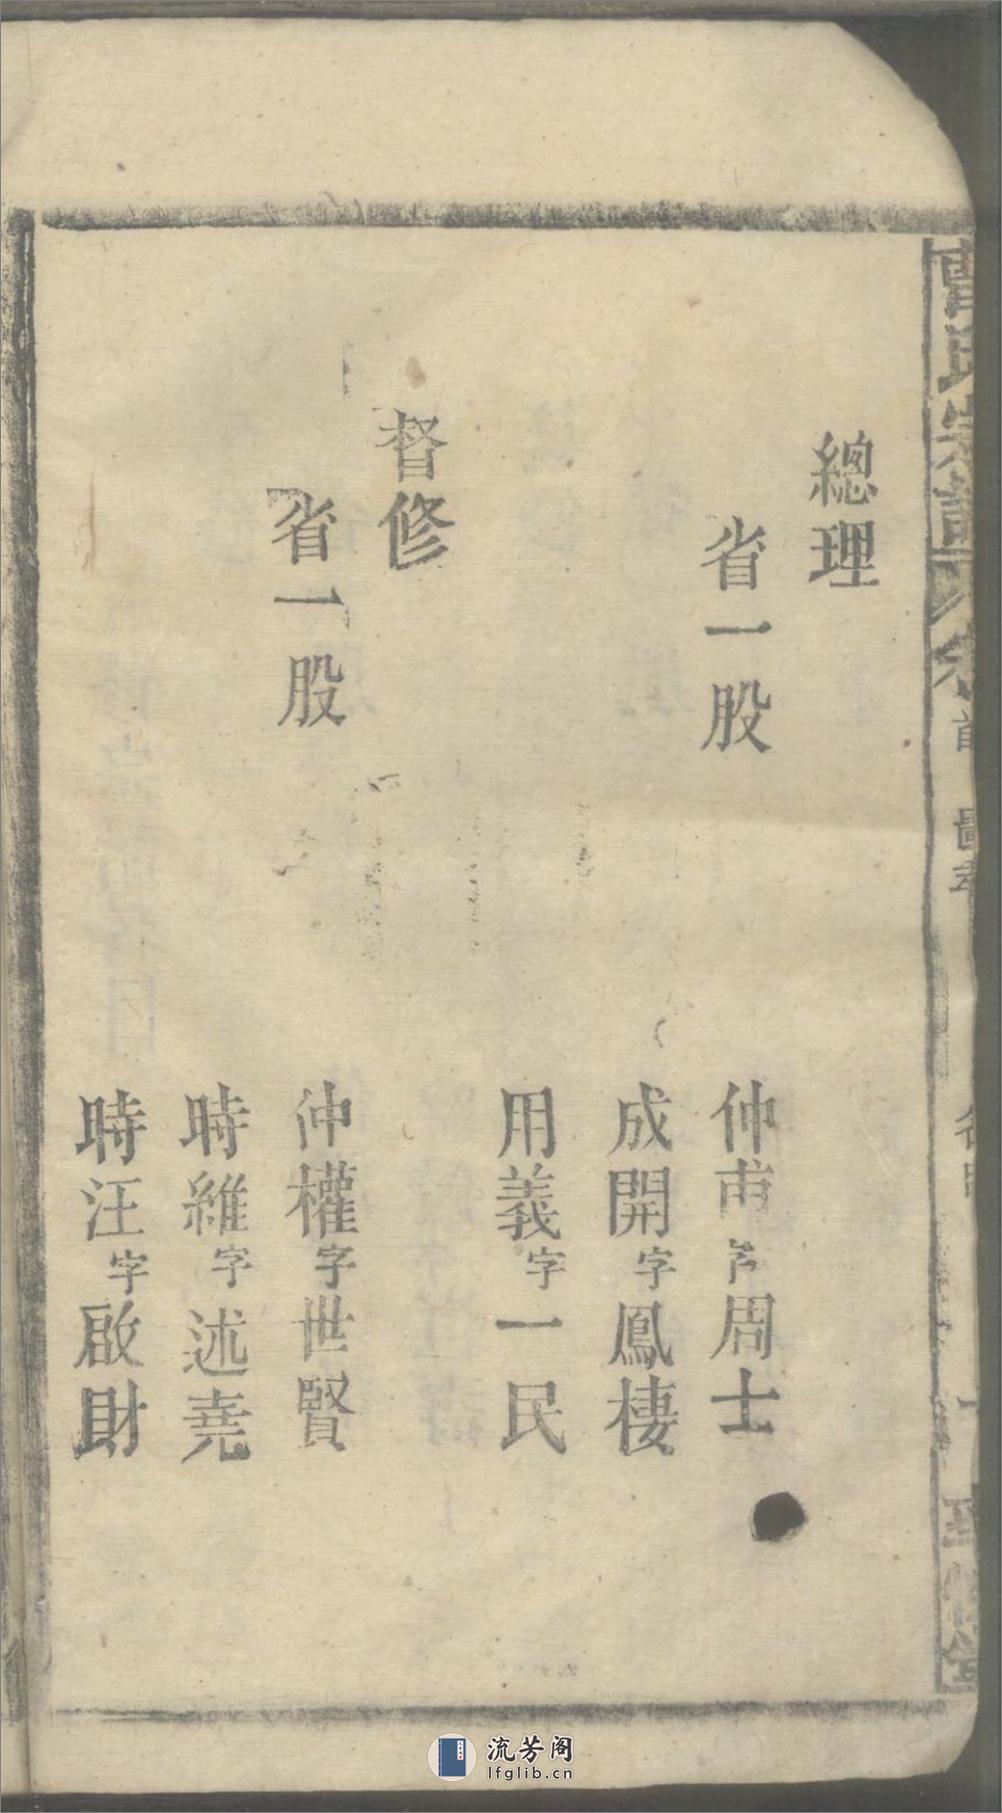 總理
省一股
仲甫字周士
成開字鳳棲
用義字一民
督修
省一股
仲權字世賢
時維字述堯
時汪字啟財
流芳阁
lfglib.cn